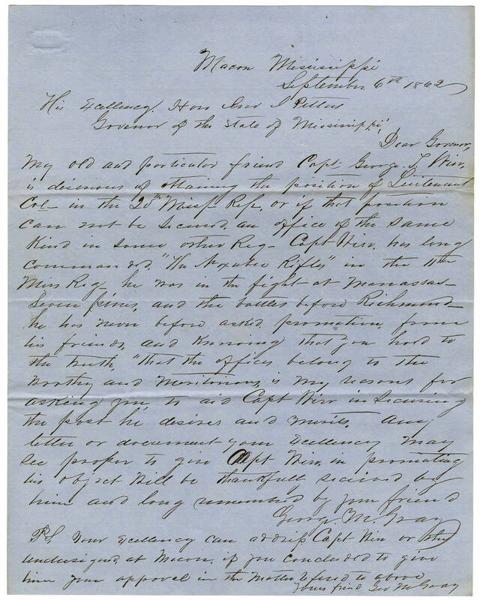 Macon Mississippi
September 6th 1862
His Excellency. Hon Jno J Pettus
Governor of the State of Mississippi
Dear Governor,
My old and particular friend Capt. George T Weir,
is desirous of attaining the position of Lieutenant
Col- in the 20th Miss- Reg, or if that position
can not be secured, an office of the same
kind in some other Reg- Capt Weir has long
commanded, "The Noxubee Rifles" in the 11th
Miss Reg- he was in the fight at Manassas-
Seven Pines, and the battles before Richmond-
he has never before asked promotion from
his friends, and knowing that you hold to
the truth, "that the offices belong to the
worthy and meritorious, is my reasons for
asking you, to aid Capt Weir in securing
the post he desires and merits, any
letter or document your Excellency may
see proper to give Capt Weir, in promoting
his object will be thankfully received by
him and long remembered by your friend
George M. Gray
PS. Your Excellency can address Capt Weir or the
undersigned, at Macon, if you concluded to give
him your approval in the matter refered to above
Yours friend Geo M Gray